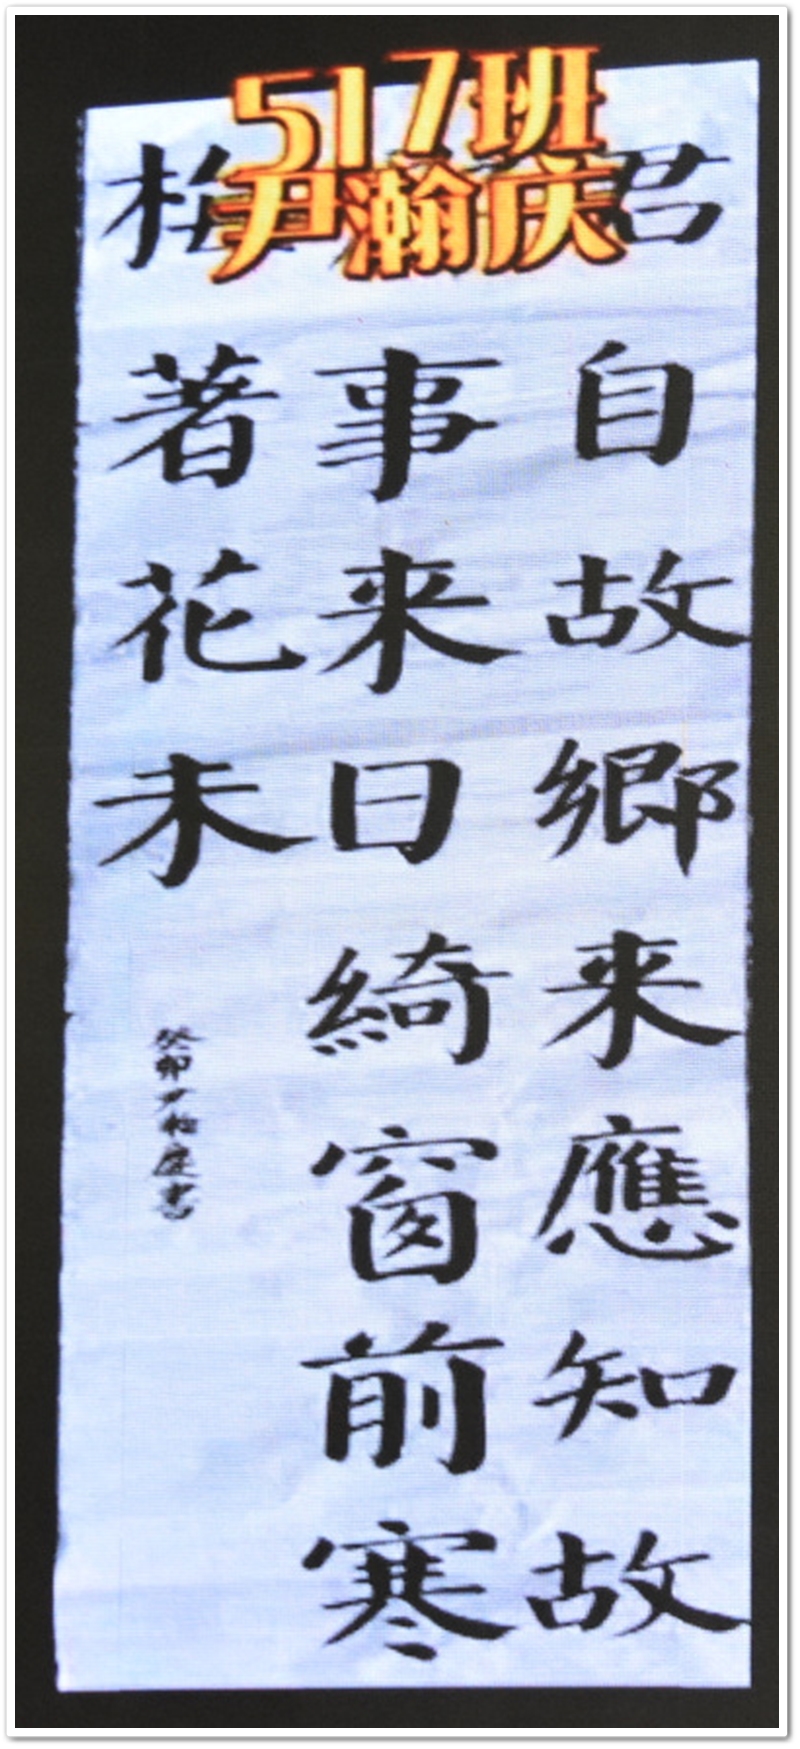 517班
尹瀚庆
君自故郷来應知故
事来日綺窗前寒
梅著花未
癸卯尹書